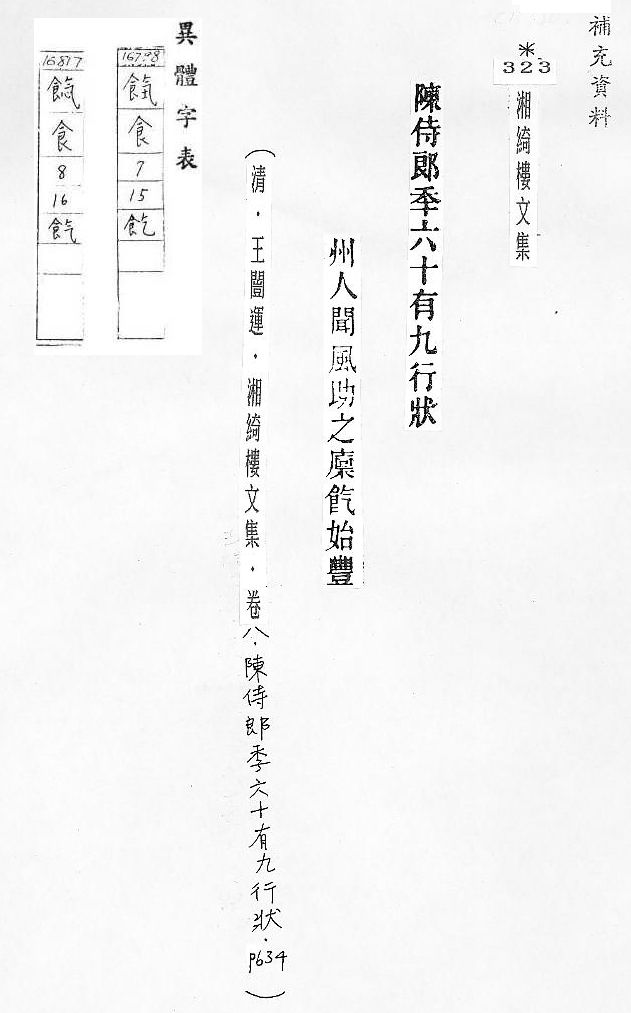 補充資料
*323
湘綺樓文集
陳侍郎秊六十有九行狀
州人聞風助之廩飠气始豐
（清．王闓運．湘綺樓文集．卷八．陳侍郎秊六十有九行狀．P634）
異體字表
16798
食
7
15
飠气
16817
食
8
16
飠气